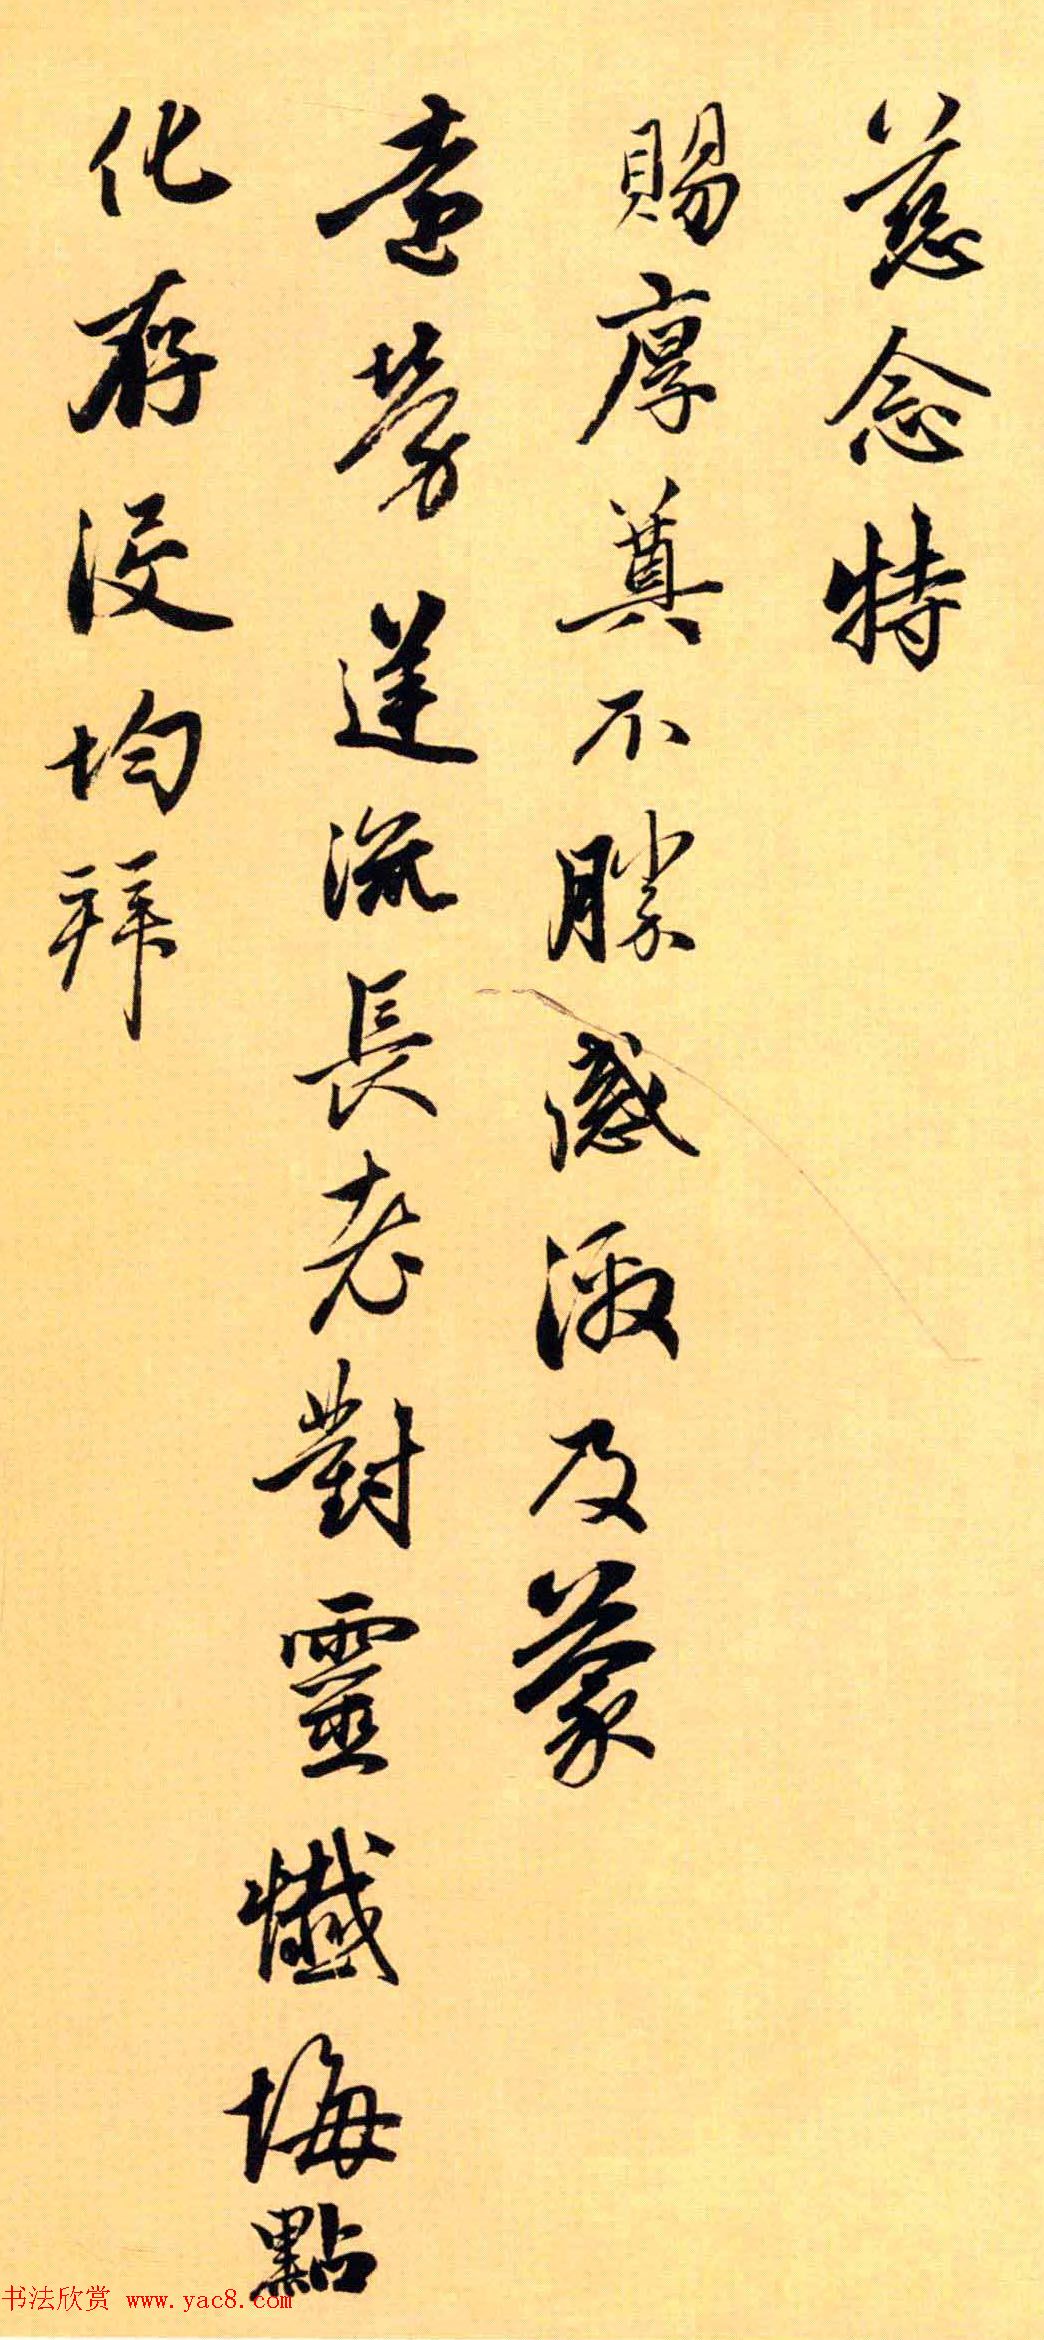 慈念特
賜厚奠不勝感激及蒙
遠勞蓮流長老對靈懺悔點
化存沒均拜
书法欣赏 www.yac8.com